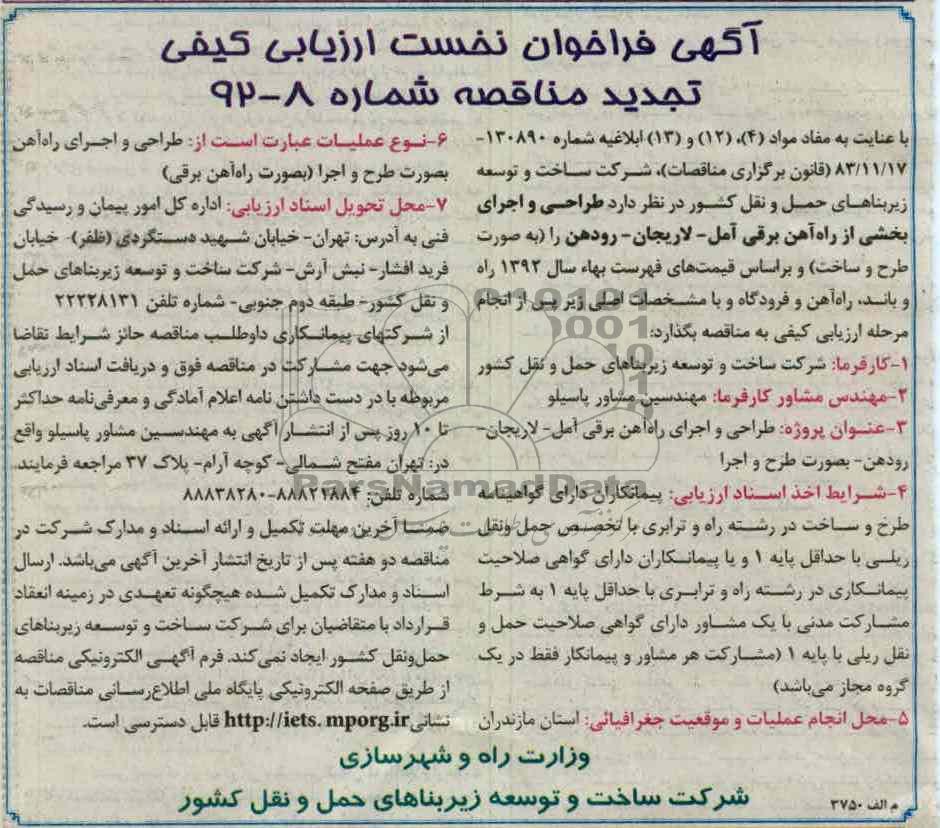 آگهی فراخوان نخست ارزیابی کیفی
تجدید مناقصه شماره ۸-۹۲
با عنایت به مفاد مواد (۴)، (۱۲) و (۱۳) ابلاغیه شماره ۱۳۰۸۹۰-
۸۳/۱۱/۱۷ (قانون برگزاری مناقصات)، شرکت ساخت و توسعه
زیربناهای حمل و نقل کشور در نظر دارد طراحی و اجرای
بخشی از راه‌آهن برقی آمل- لاریجان- رودهن را (به صورت
طرح و ساخت) و براساس قیمت‌های فهرست بهاء سال ۱۳۹۲ راه
و باند، راه‌آهن و فرودگاه و با مشخصات اصلی زیر پس از انجام
مرحله ارزیابی کیفی به مناقصه بگذارد:
۱-کارفرما: شرکت ساخت و توسعه زیربناهای حمل و نقل کشور
۲-مهندس مشاور کارفرما: مهندسین مشاور پاسیلو
۳-عنوان پروژه: طراحی و اجرای راه‌آهن برقی آمل- لاریجان-
رودهن- بصورت طرح و اجرا
۴-شرایط اخذ اسناد ارزیابی: پیمانکاران دارای گواهینامه
طرح و ساخت در رشته راه و ترابری با تخصص حمل ونقل
ریلی با حداقل پایه ۱ و یا پیمانکاران دارای گواهی صلاحیت
پیمانکاری در رشته راه و ترابری با حداقل پایه ۱ به شرط
مشارکت مدنی با یک مشاور دارای گواهی صلاحیت حمل و
نقل ریلی با پایه ۱ (مشارکت هر مشاور و پیمانکار فقط در یک
گروه مجاز می‌باشد)
۵-محل انجام عملیات و موقعیت جغرافیائی: استان مازندران
۶-نوع عملیات عبارت است از: طراحی و اجرای راه‌آهن
بصورت طرح و اجرا (بصورت راه‌آهن برقی)
۷-محل تحویل اسناد ارزیابی: اداره کل امور پیمان و رسیدگی
فنی به آدرس: تهران- خیابان شهید دستگردی (ظفر)- خیابان
فرید افشار- نبش آرش- شرکت ساخت و توسعه زیربناهای حمل
و نقل کشور- طبقه دوم جنوبی- شماره تلفن ۲۲۲۲۸۱۳۱
از شرکتهای پیمانکاری داوطلب مناقصه حائز شرایط تقاضا
می‌شود جهت مشارکت در مناقصه فوق و دریافت اسناد ارزیابی
مربوطه با در دست داشتن نامه اعلام آمادگی و معرفی‌نامه حداکثر
تا ۱۰ روز پس از انتشار آگهی به مهندسین مشاور پاسیلو واقع
در: تهران مفتح شمالی- کوچه آرام- پلاک ۳۷ مراجعه فرمایند.
شماره تلفن: ۸۸۸۲۱۸۸۴-۸۸۸۳۸۲۸۰
ضمناً آخرین مهلت تکمیل و ارائه اسناد و مدارک شرکت در
مناقصه دو هفته پس از تاریخ انتشار آخرین آگهی می‌باشد. ارسال
اسناد و مدارک تکمیل شده هیچگونه تعهدی در زمینه انعقاد
قرارداد با متقاضیان برای شرکت ساخت و توسعه زیربناهای
حمل‌ونقل کشور ایجاد نمی‌کند. فرم آگهی الکترونیکی مناقصه
از طریق صفحه الکترونیکی پایگاه ملی اطلاع‌رسانی مناقصات به
نشانی http://iets.mporg.ir قابل دسترسی است.
وزارت راه و شهرسازی
شرکت ساخت و توسعه زیربناهای حمل و نقل کشور
م الف ۳۷۵۰
ParsNamadData